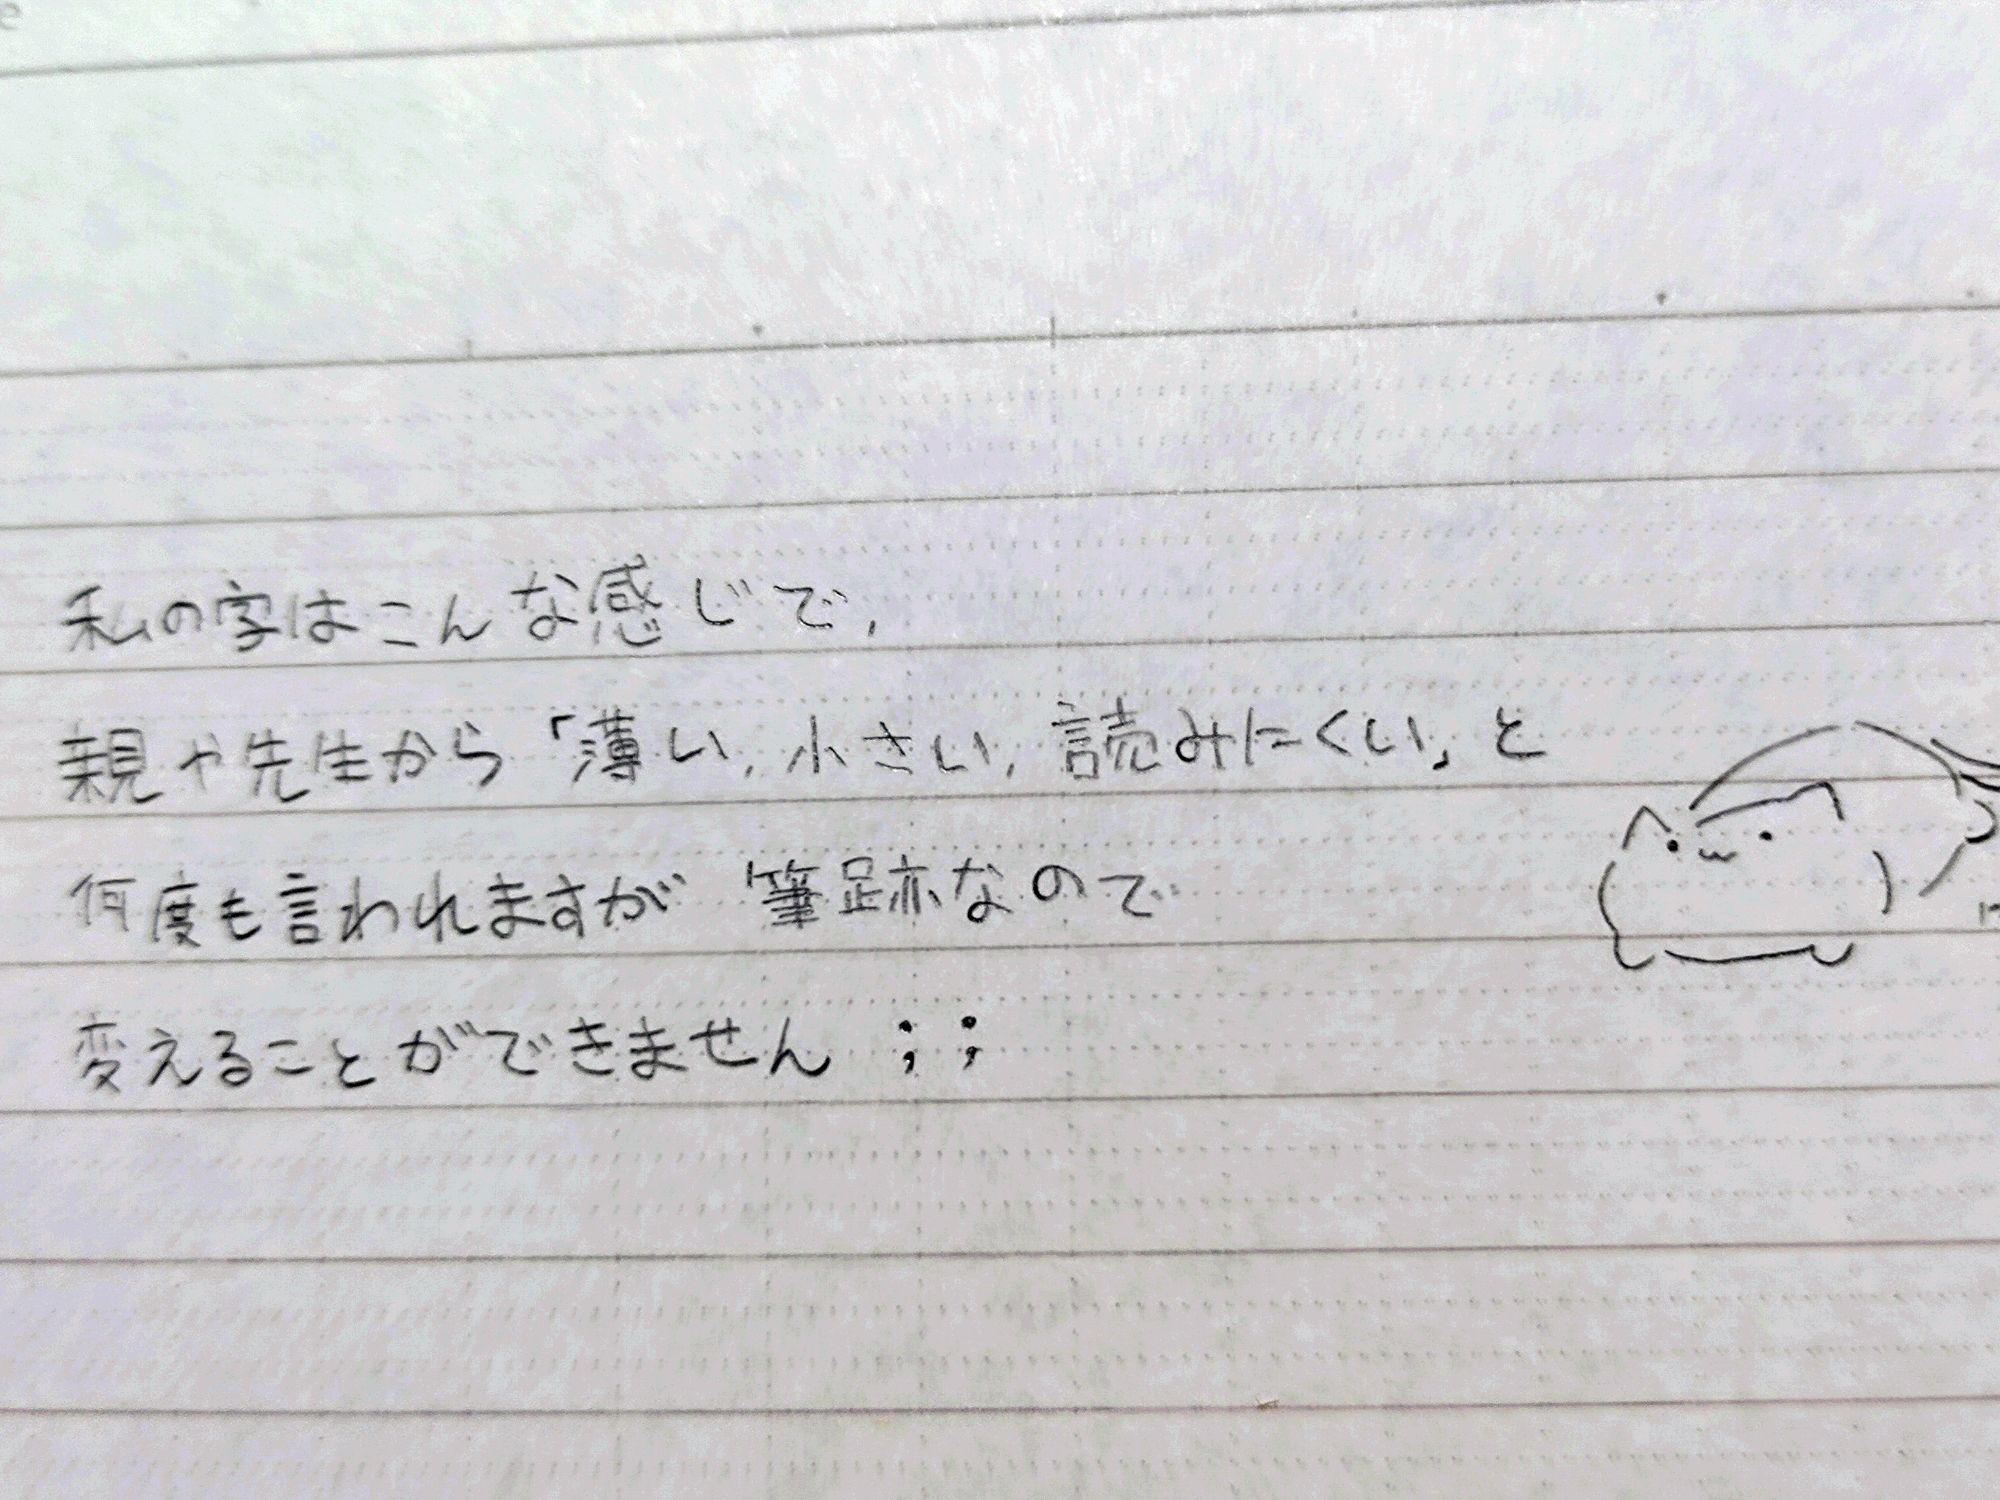 私の字はこんな感じで,
親や先生から「薄い,小さい,読みにくい」と
何度も言われますが 筆跡なので
変えることができません ;;